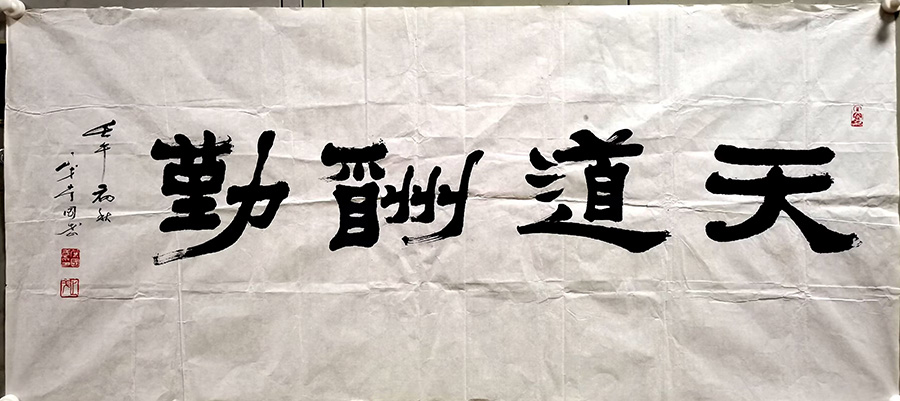 天道酬勤
壬午初秋